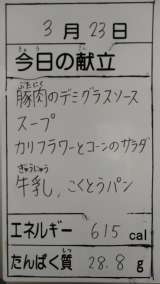 3月23日
今日の献立
豚肉のデミグラスソース
スープ
カリフラワーとコーンのサラダ
牛乳、こくとうパン
エネルギー 615 cal
たんぱく質 28.8 g